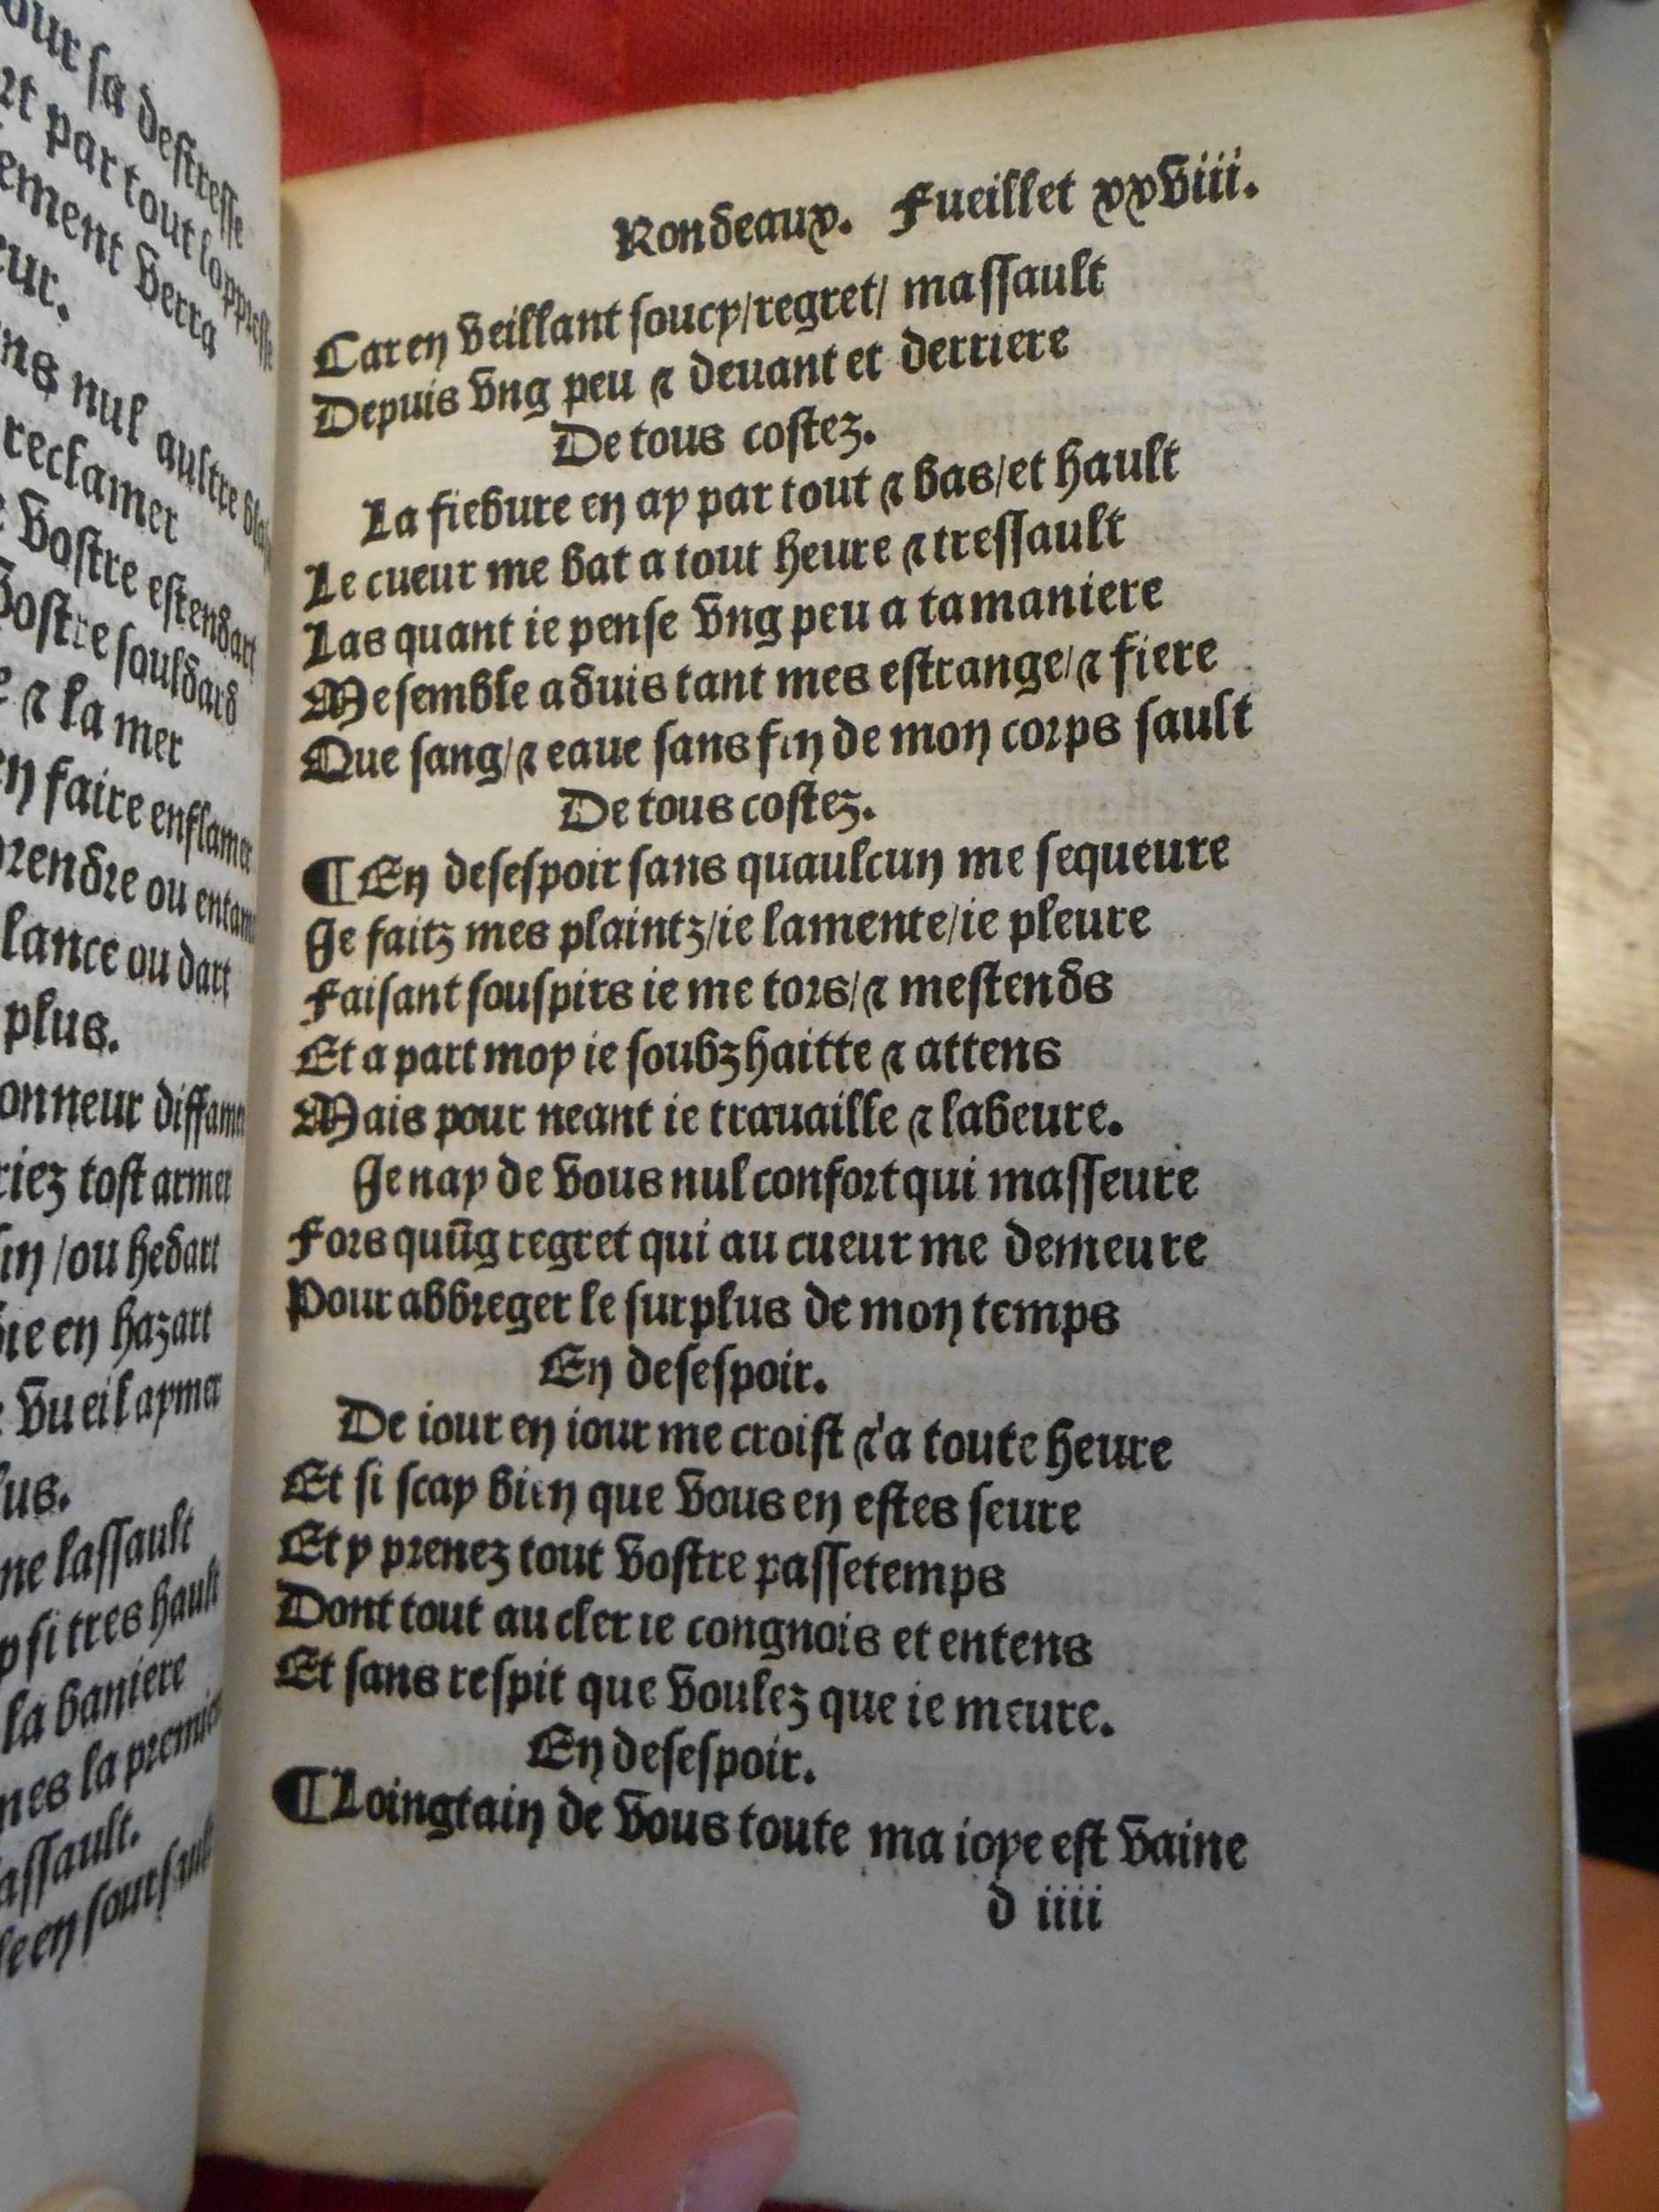 our sa destresse
rt par tout loppresse
ement verra
eur.
ns nul aultre
reclamer
vostre estendart
vostre souldard
e & la mer
en faire enflamer
prendre ou entamer
lance ou dart
plus.
onneur diffamer
riez tost armer
in /ou hedart
ie en hazart
vueil aymer
lus.
ne lassault
y si tres hault
la baniere
nes la premiere
assault.
le en soursault
Rondeaux. Fueillet xxviii.
Car en veillant soucy/regret/ massault
Depuis vng peu & deuant et derriere
De tous costez.
La fiebure en ay par tout & bas/et hault
Le cueur me bat a tout heure & tressault
Las quant ie pense vng peu a ta maniere
Me semble aduis tant mes estrange/& fiere
Que sang/& eaue sans fin de mon corps sault
De tous costez.
¶En desespoir sans quaulcun me sequeure
Je faitz mes plaintz/ie lamente/ie pleure
Faisant souspirs ie me tors/& mestends
Et a part moy ie soubzhaitte & attens
Mais pour neant ie trauaille & labeure.
Je nay de vous nul confort qui masseure
Fors quūg regret qui au cueur me demeure
Pour abbreger le surplus de mon temps
En desespoir.
De iour en iour me croist & a toute heure
Et si scay bien que vous en estes seure
Et y prenez tout vostre passetemps
Dont tout au cler ie congnois et entens
Et sans respit que voulez que ie meure.
En desespoir.
¶Loingtain de vous toute ma ioye est vaine
d iiii